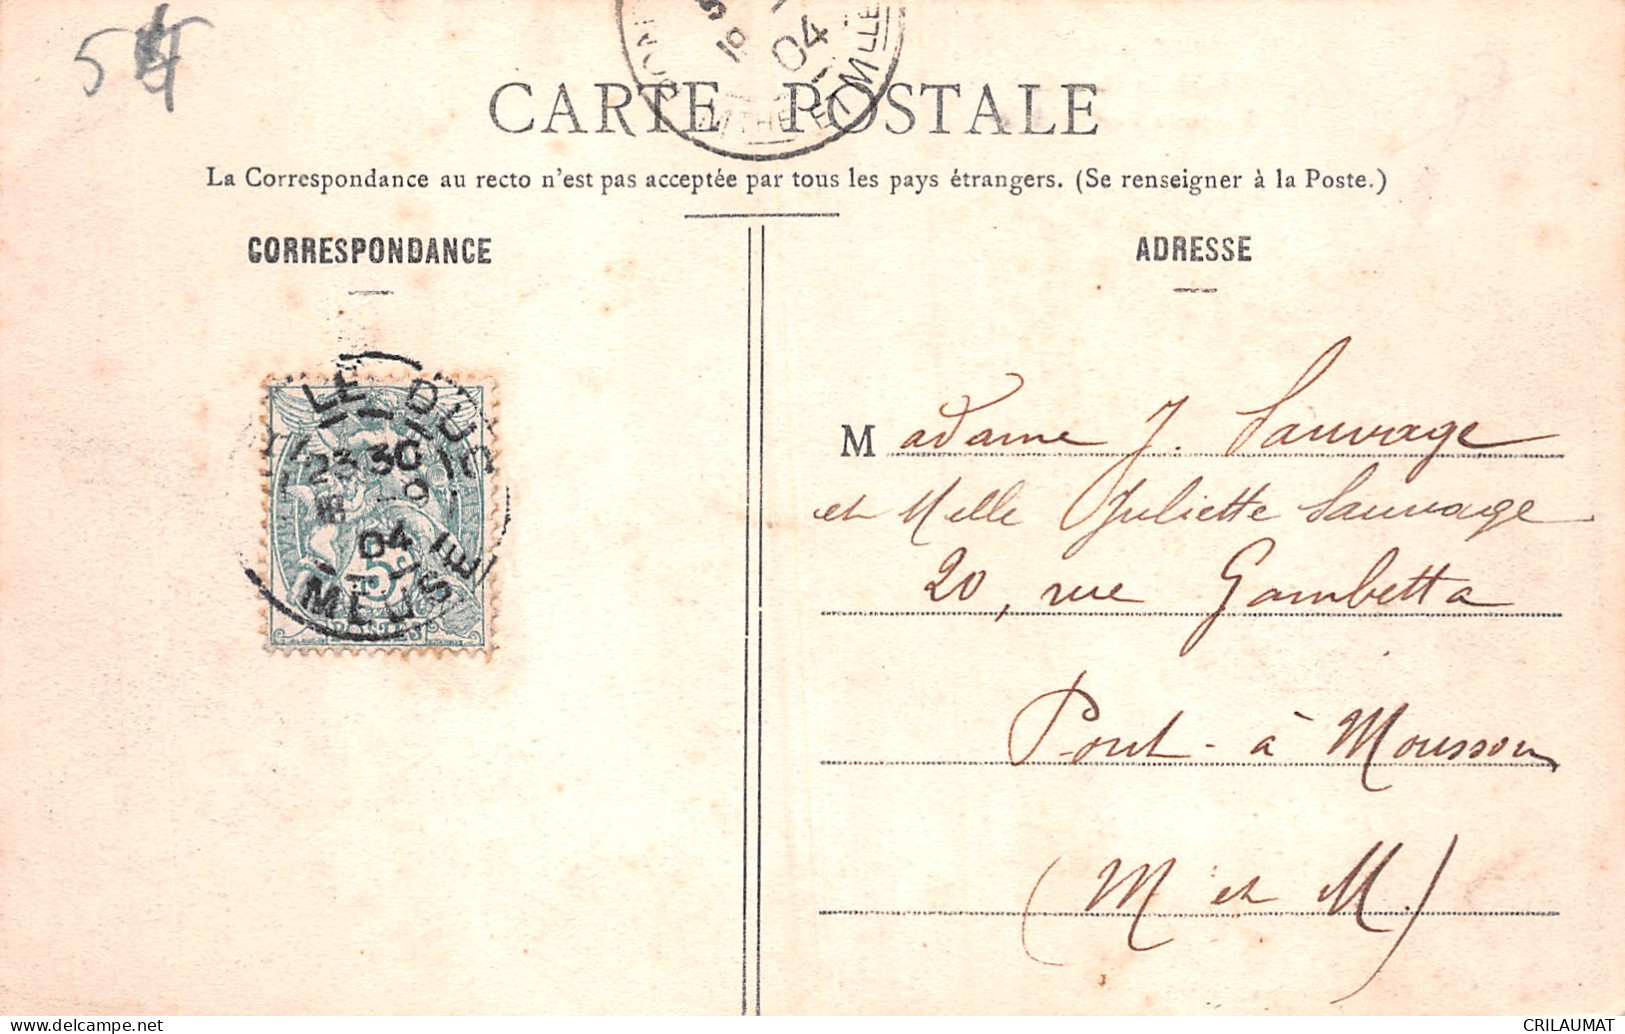 54
18
04
ET MLLE
CARTE POSTALE
La Correspondance au recto n'est pas acceptée par tous les pays étrangers. (Se renseigner à la Poste.)
CORRESPONDANCE
ADRESSE
LE DUC
23 30
04
MEUSE
5
POSTES
Madame J. Sauvage
et Melle Juliette Sauvage
20, rue Gambetta
Pont-à Mousson
(M et M.)
delcampe.net
CRILAUMAT